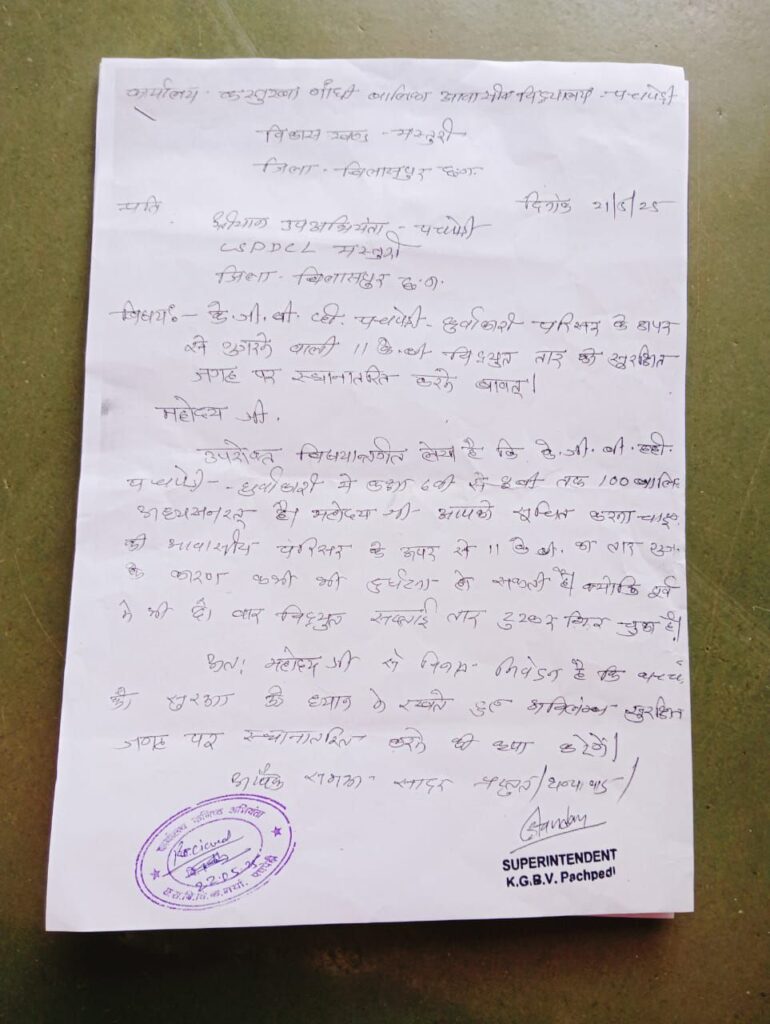 कार्यालय कस्तुरबा गाँधी बालिका आवासीय विद्यालय - पचपेड़ी
विकास खण्ड - मस्तुरी
जिला - बिलासपुर छ.ग.
दिनांक 21/5/25
प्रति
श्रीमान उपअभियंता - पचपेड़ी
CSPDCL मस्तुरी
जिला - बिलासपुर छ.ग.
विषय :- के.जी.बी.व्ही. पचपेड़ी - धुर्वाकारी परिसर के ऊपर
से गुजरने वाली 11 के.बी विद्युत तार को सुरक्षित
जगह पर स्थानातरित करने बावत्।
महोदय जी.
उपरोक्त विषयान्तर्गत लेख है कि के.जी.बी.व्ही.
पचपेड़ी - धुर्वाकारी में कक्षा 6वी से 8वी तक 100
अध्ययनरत् है। महोदय जी आपको सूचित करना
की आवासीय परिसर के ऊपर से 11 के.बी. का तार
के कारण कभी भी दुर्घटना हो सकती है। क्योकि पूर्व
मे भी दो बार विद्युत सप्लाई तार टुटकर गिर चुका है।
अतः महोदय जी से विनम्र निवेदन है कि बच्चों
की सुरक्षा को ध्यान मे रखते हुए अविलंब सुरक्षित
जगह पर स्थानातरित करने की कृपा करेंगे।
सादर प्रस्तुत / धन्यवाद /
SUPERINTENDENT
K.G.B.V. Pachpedi
कार्यालय कनिष्ठ अभियंता
Recieved
22.05.25